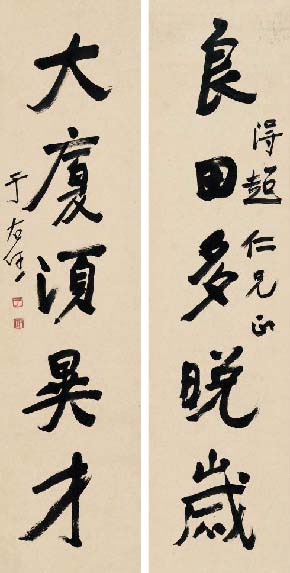 良田多晚歲
得超仁兄正
大廈須異才
于右任